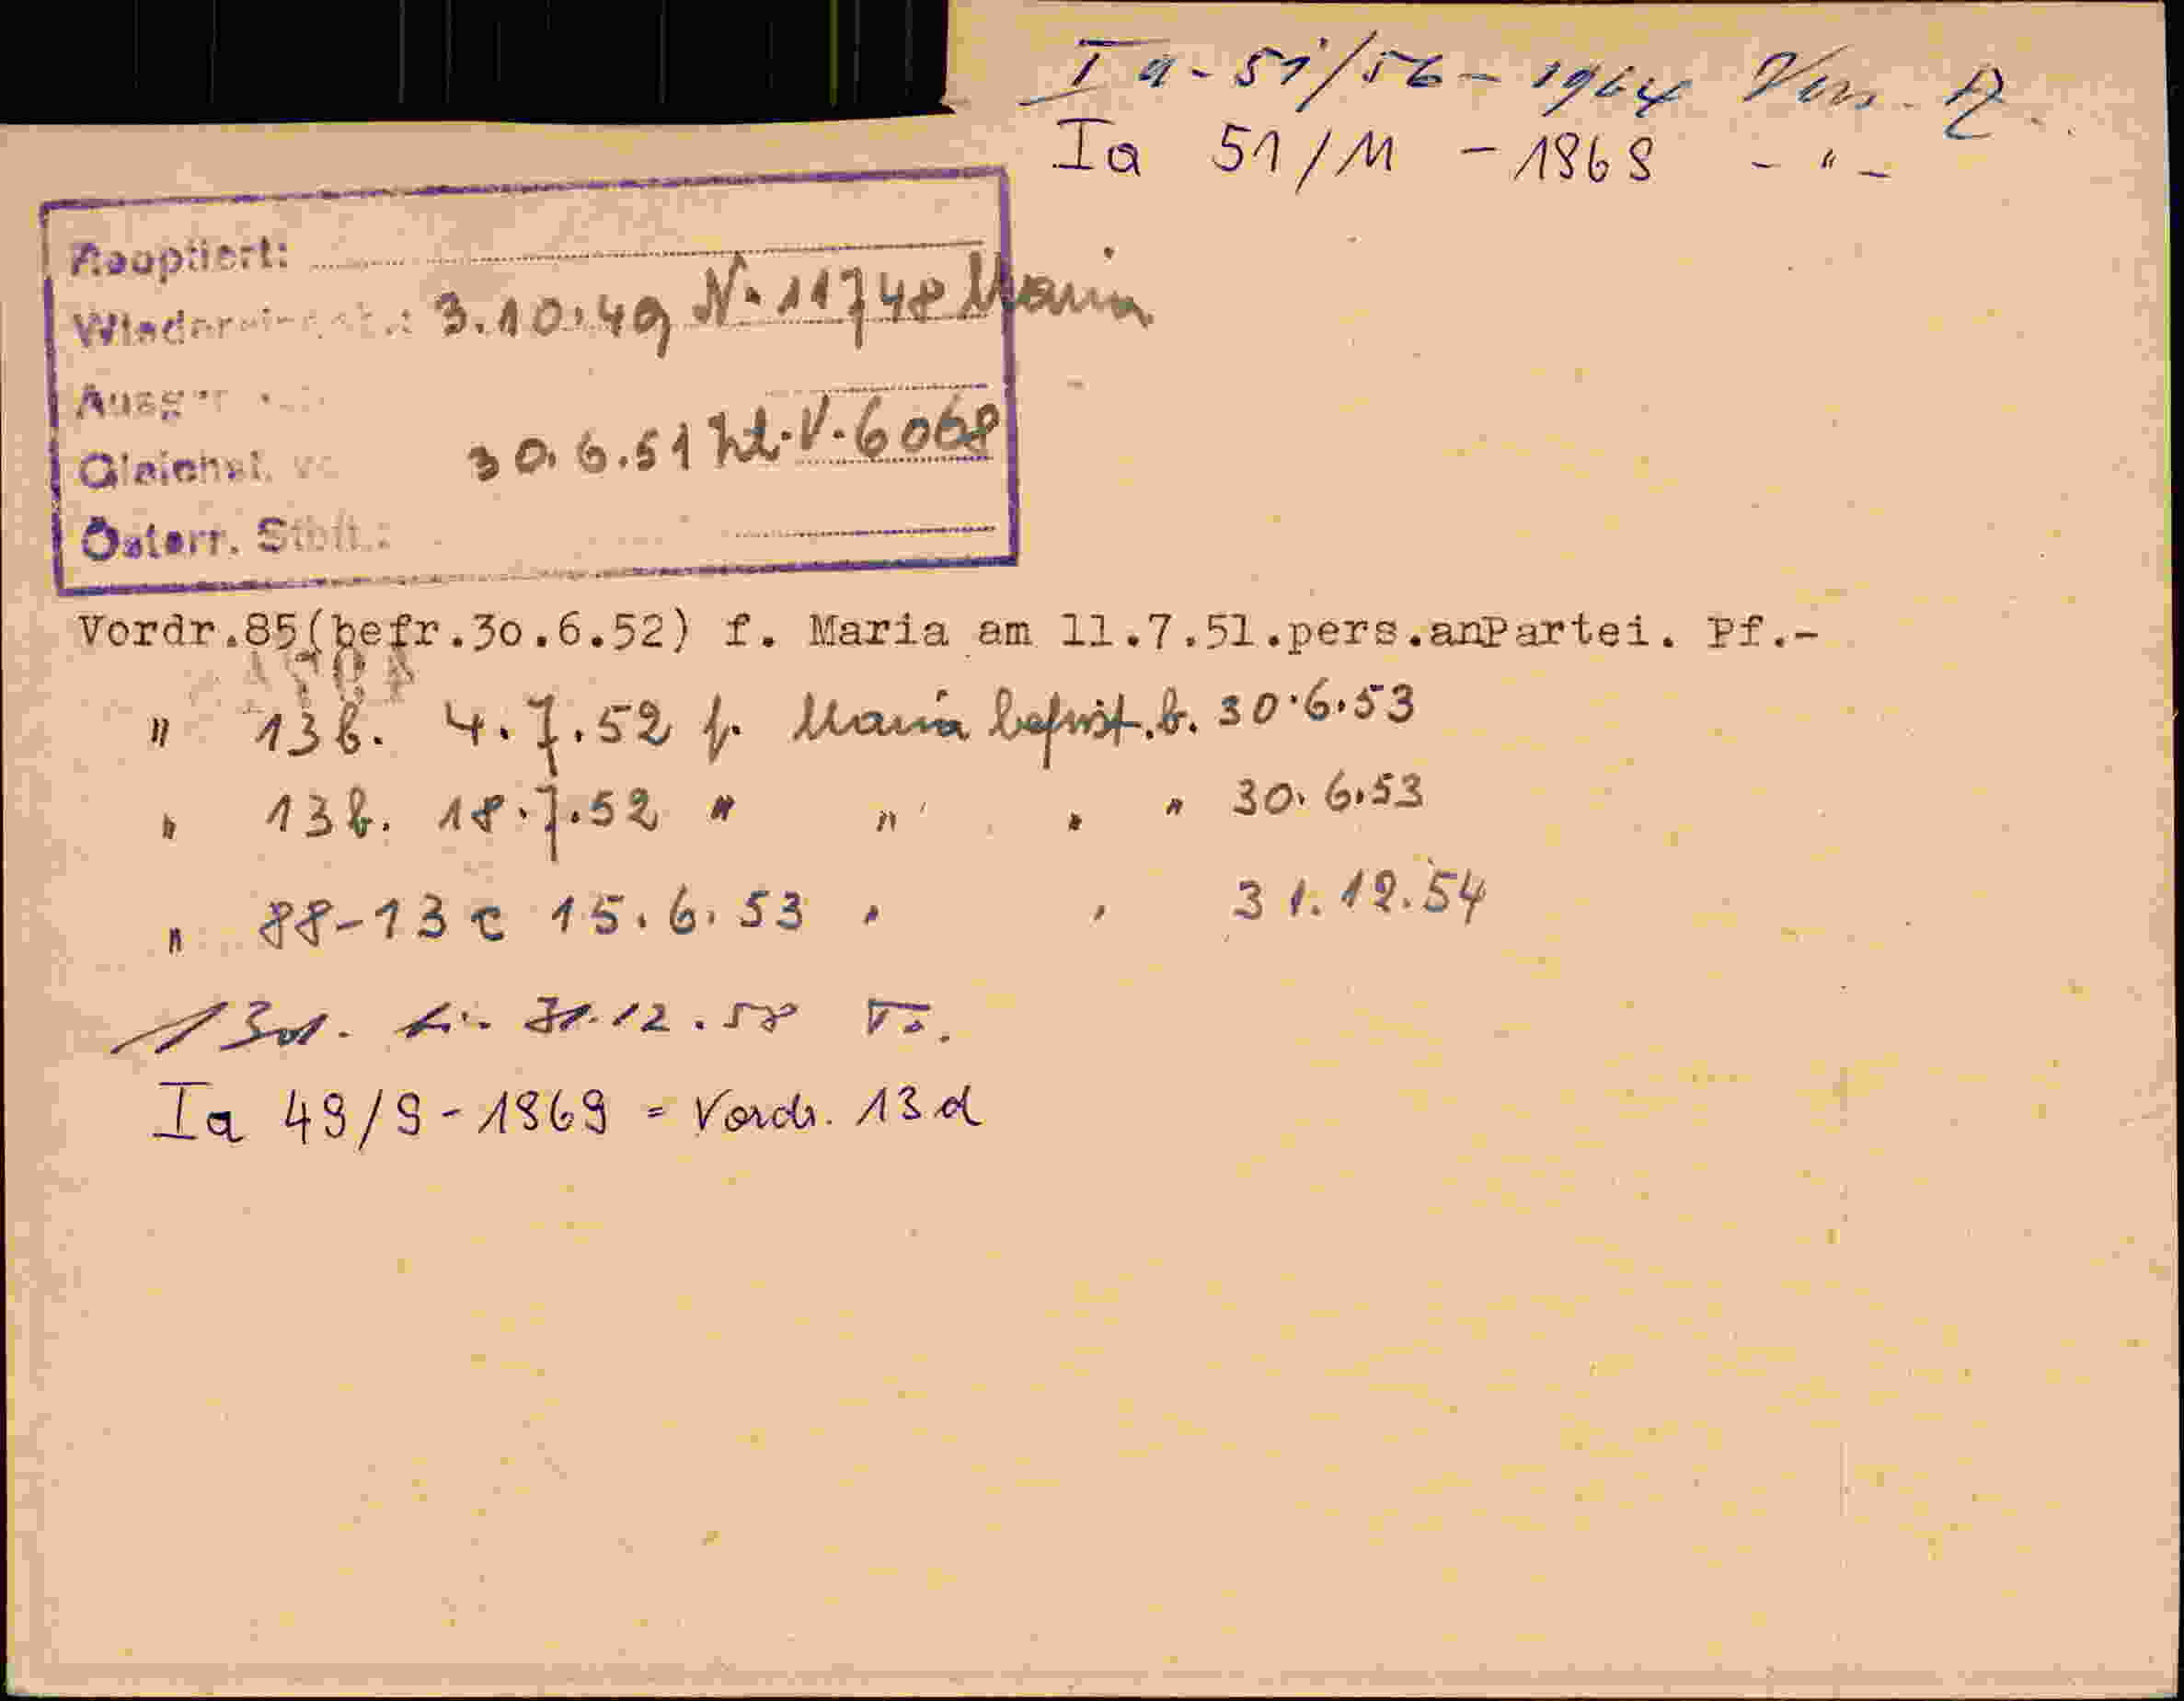 Ia - 51/56 - 1964 Ver. A
Ia 51/M - 1968 - " -
Reoptiert:
Wiedereingeb.: 3.10.49 N. 11748 Maria
Ausger
Gleichst. v 30.6.51 Zl.V.6068
Österr. Stbft.:
Vordr.85(befr.3o.6.52) f. Maria am 11.7.51.pers.anPartei. Pf.-
" 13b. 4.7.52 f. Maria befrist.b. 30.6.53
" 13b. 18.7.52 " " " " 30.6.53
" 88-13c 15.6.53 " " 31.12.54
31.12.58
Ia 49/9-1969 = Vordr. 13d